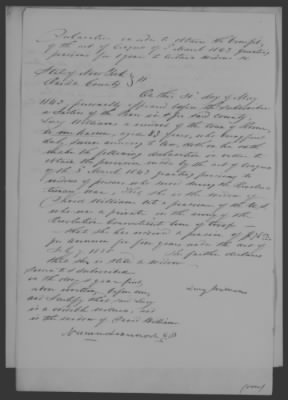 Declaration in order to obtain the benefit
of the act of Congress of 3 March 1843 granting
pensions for 1 year to certain widows &c
State of New York
County } ss
On this 31st day of May
1843 personally appeared before the Subscriber
a Justice of the Peace in & for said county,
Lucy Williams a resident of the town of
aged 83 years, who being first
duly sworn according to law, doth on her oath
make the following declaration in order to
obtain the provision made by the act of Congress
of the 3 March 1843 granting pensions to
widows of persons who served during the Revolu-
tionary war. That she is the widow of
David Williams late a pensioner of the U.S.
who was a private in the army of the
Revolution
that she has received a pension of
per annum for five years under the act of
July 7 1838. She further declares
that she is still a widow
Sworn to & subscribed
on the day & year first
above written, before me,
and I certify that said Lucy
is a credible woman, and
is the widow of David Williams
Lucy Williams